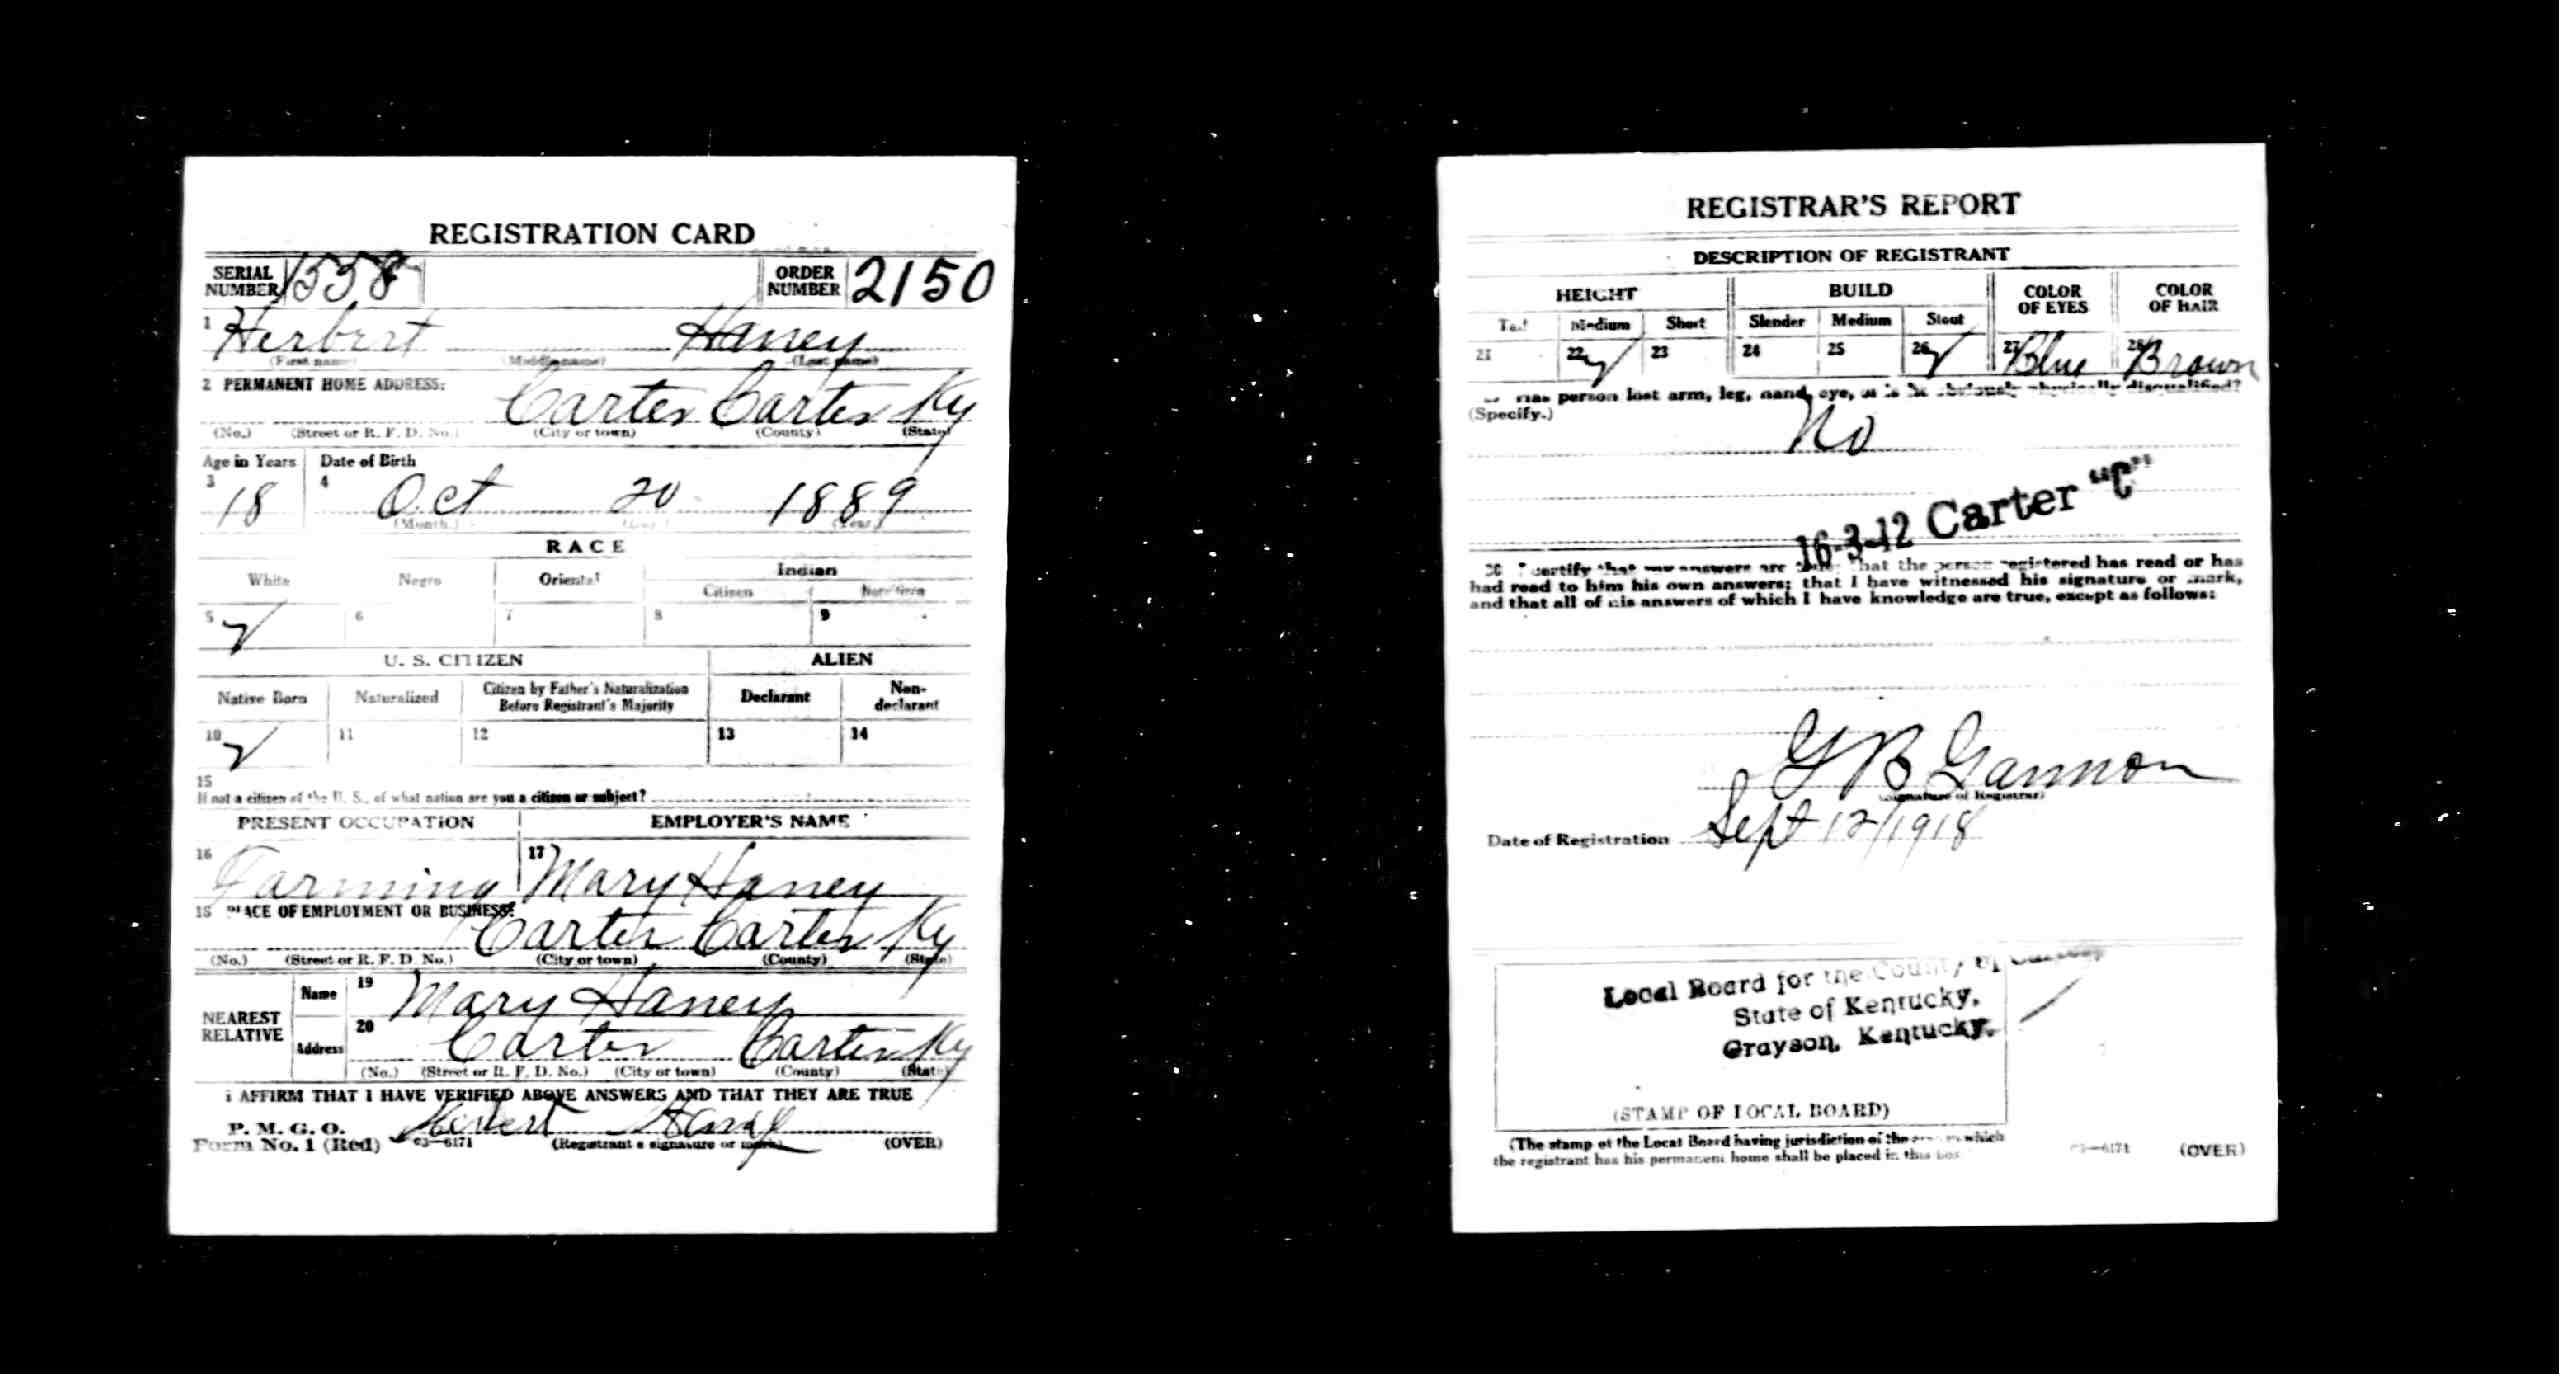 REGISTRATION CARD
SERIAL NUMBER 1558 ORDER NUMBER 2150
1 Herbert Haney
(First name) (Middle name) (Last name)
2 PERMANENT HOME ADDRESS:
Carter Carter Ky
(No.) (Street or R. F. D. No.) (City or town) (County) (State)
Age in Years Date of Birth
3 18 4 Oct 20 1889
(Month.) (Day.) (Year.)
RACE
White Negro Oriental Indian
Citizen Noncitizen
5 ✓ 6 7 8 9
U. S. CITIZEN ALIEN
Native Born Naturalized Citizen by Father's Naturalization Before Registrant's Majority Declarant Non-declarant
10 ✓ 11 12 13 14
15
If not a citizen of the U. S., of what nation are you a citizen or subject?
PRESENT OCCUPATION EMPLOYER'S NAME
16 Farming 17 Mary Haney
18 PLACE OF EMPLOYMENT OR BUSINESS:
Carter Carter Ky
(No.) (Street or R. F. D. No.) (City or town) (County) (State)
NEAREST RELATIVE Name 19 Mary Haney
Address 20 Carter Carter Ky
(No.) (Street or R. F. D. No.) (City or town) (County) (State)
I AFFIRM THAT I HAVE VERIFIED ABOVE ANSWERS AND THAT THEY ARE TRUE
P. M. G. O.
Form No. 1 (Red) 03—6171 Herbert Haney (Registrant's signature or mark) (OVER)
REGISTRAR'S REPORT
DESCRIPTION OF REGISTRANT
HEIGHT BUILD COLOR OF EYES COLOR OF HAIR
Tall Medium Short Slender Medium Stout
21 22 ✓ 23 24 25 26 ✓ 27 Blue 28 Brown
Has person lost arm, leg, hand, eye, or is he obviously physically disqualified?
(Specify.)
No
16-3-12 Carter "C"
30 I certify that my answers are true; that the person registered has read or has
had read to him his own answers; that I have witnessed his signature or mark,
and that all of his answers of which I have knowledge are true, except as follows:
G B Gannon
(Signature of Registrar)
Date of Registration Sept 12/1918
Local Board for the County of Carter
State of Kentucky,
Grayson, Kentucky.
(STAMP OF LOCAL BOARD)
(The stamp of the Local Board having jurisdiction of the area in which
the registrant has his permanent home shall be placed in this box.
03—6171 (OVER)